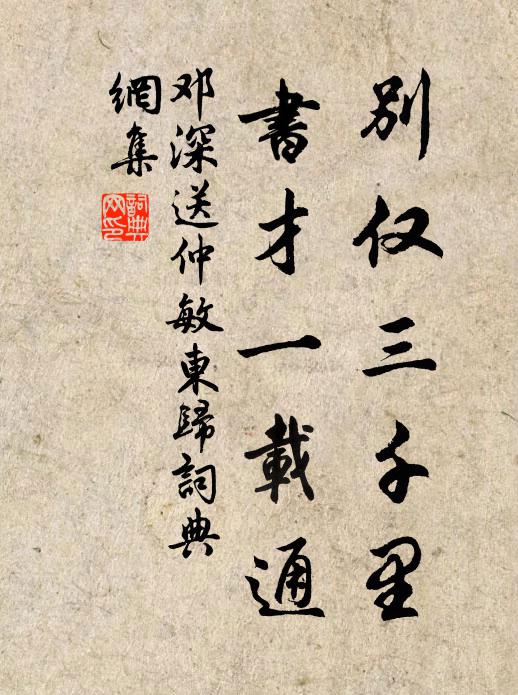 別仅三千里
書才一載通
邓深送仲敏東歸詞典
網集
詞典網印